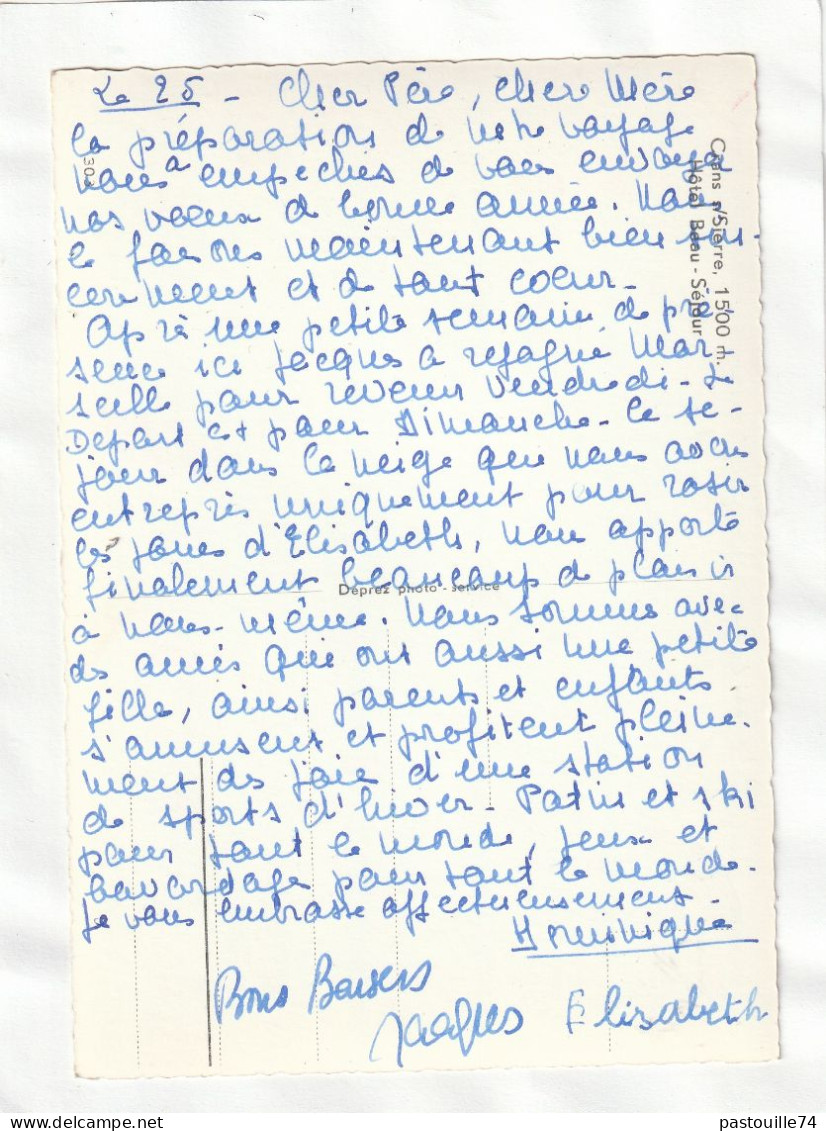 Le 25 - Cher Père, Chère Mère
la préparation de notre voyage
nous a empêchés de vous envoyer
nos voeux de bonne année. Nous
le faisons maintenant bien sin-
cerement et de tout coeur -
Après une petite semaine de pré-
sence ici Jacques a regagné Mar-
seille pour revenir Vendredi - Le
Départ est pour Dimanche - Ce sé-
jour dans la neige que nous avons
entrepris uniquement pour rosir
les joues d'Elisabeth, nous apporte
finalement beaucoup de plaisir
à nous-même. Nous sommes avec
des amis qui ont aussi une petite
fille, ainsi parents et enfants
s'amusent et profitent pleine-
ment des joies d'une station
de sports d'hiver - Patin et ski
pour tout le monde, jeux et
bavardages pour tout le monde.
Je vous embrasse affectueusement -
Dominique
Bons Baisers
Jacques Elisabeth
Crans s/Sierre, 1500 m.
Hôtel Beau-Séjour
303
Deprez photo-service
pastouille74